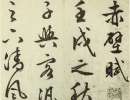 赤壁賦
壬戌之秋
子與客泛
之下清風